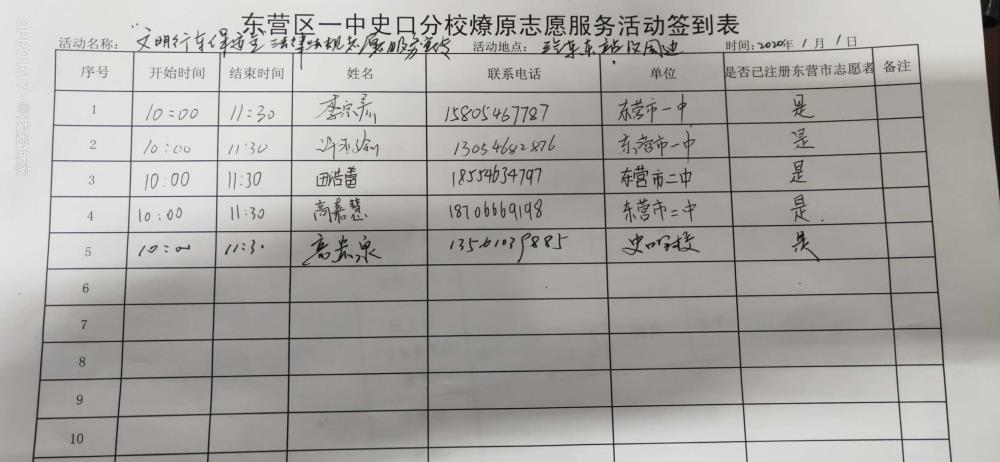 东营区一中史口分校燎原志愿服务活动签到表
活动名称：“文明行车保安全 法律法规志愿服务宣传 活动地点：汽车东站及周边 时间：2020年1月1日
序号 开始时间 结束时间 姓名 联系电话 单位 是否已注册东营市志愿者 备注
1 10:00 11:30 李宗 15805467787 东营市一中 是
2 10:00 11:30 许 13054682876 东营市一中 是
3 10:00 11:30 田浩蕾 18554634797 东营市二中 是
4 10:00 11:30 高嘉慧 18706669198 东营市二中 是
5 10:00 11:30 高 泉 13561039885 史口学校 是
6
7
8
9
10